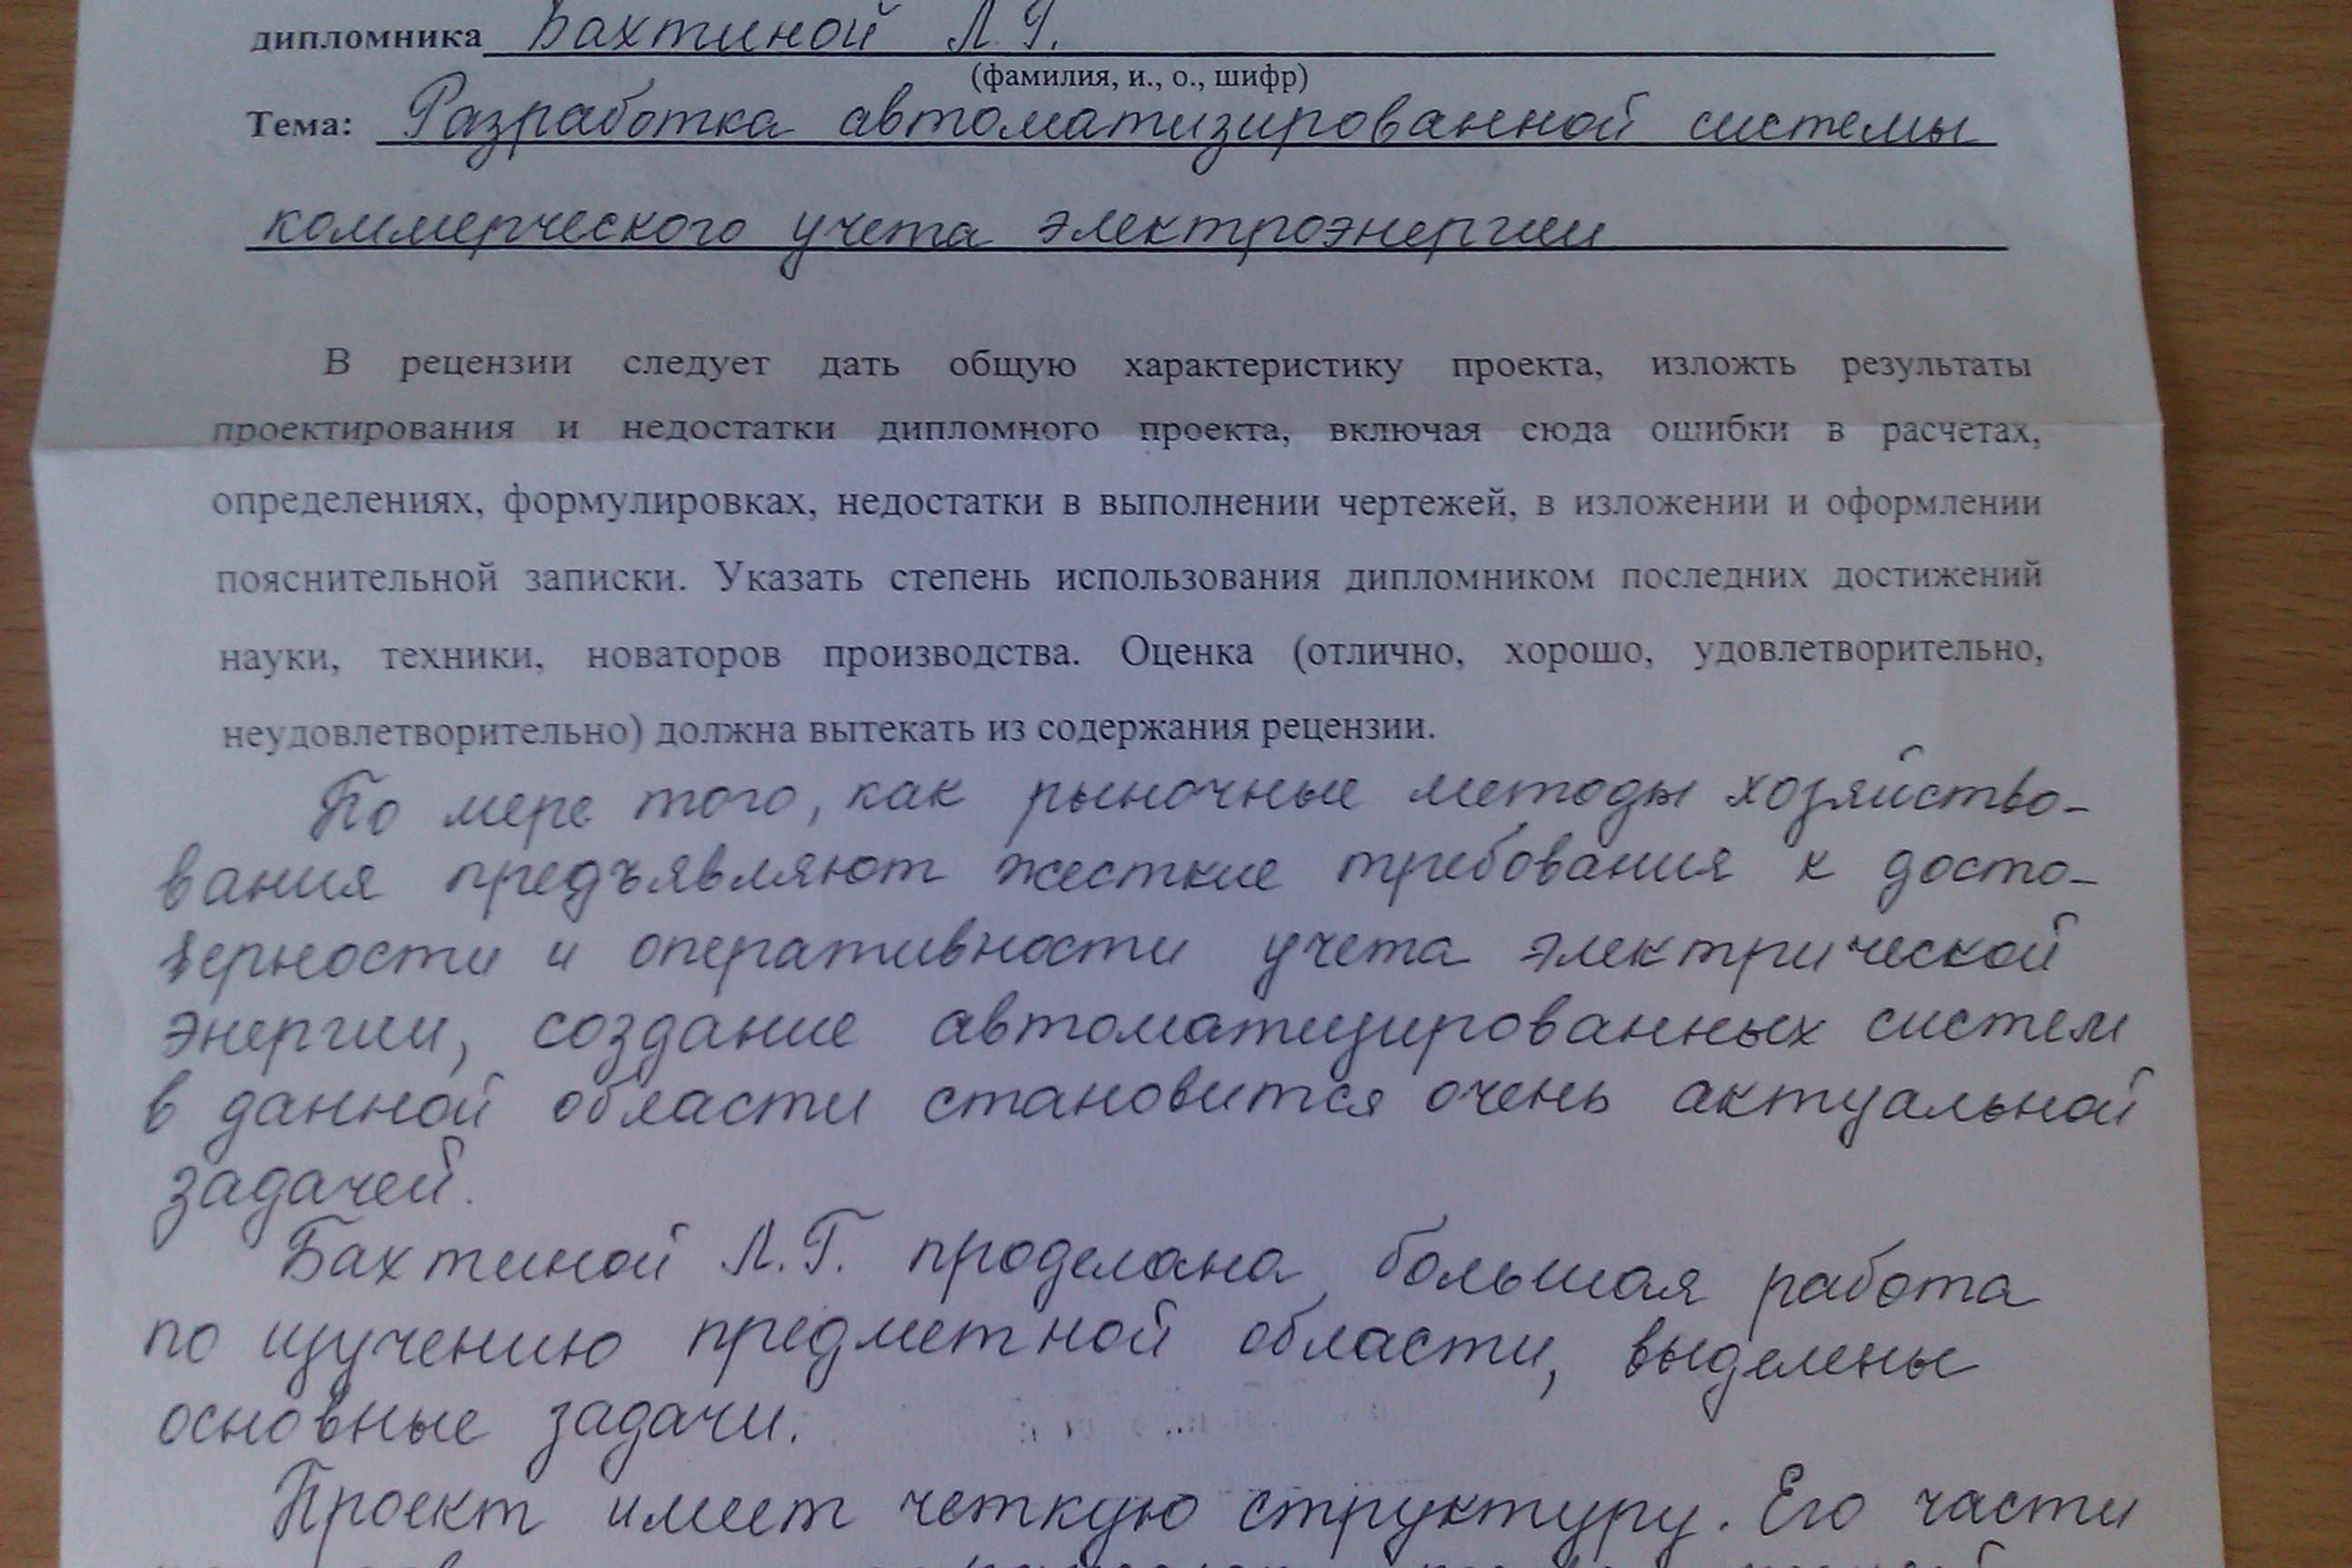 дипломника Бахтиной Л.Г.
(фамилия, и., о., шифр)
Тема: Разработка автоматизированной системы
коммерческого учета электроэнергии
В рецензии следует дать общую характеристику проекта, изложть результаты
проектирования и недостатки дипломного проекта, включая сюда ошибки в расчетах,
определениях, формулировках, недостатки в выполнении чертежей, в изложении и оформлении
пояснительной записки. Указать степень использования дипломником последних достижений
науки, техники, новаторов производства. Оценка (отлично, хорошо, удовлетворительно,
неудовлетворительно) должна вытекать из содержания рецензии.
По мере того, как рыночные методы хозяйство-
вания предъявляют жесткие требования к досто-
верности и оперативности учета электрической
энергии, создание автоматизированных систем
в данной области становится очень актуальной
задачей.
Бахтиной Л.Г. проделана большая работа
по изучению предметной области, выделены
основные задачи.
Проект имеет четкую структуру. Его части